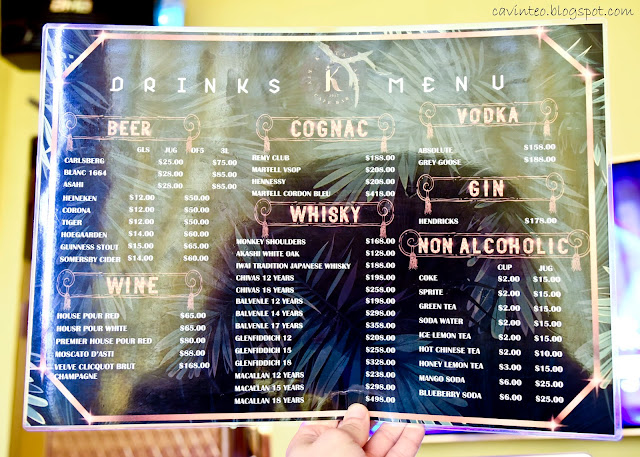 cavinteo.blogspot.com
DRINKS K MENU
BEER
GLS JUG OF5 3L
CARLSBERG $25.00 $75.00
BLANC 1664 $28.00 $85.00
ASAHI $28.00 $85.00
HEINEKEN $12.00 $50.00
CORONA $12.00 $50.00
TIGER $12.00 $50.00
HOEGAARDEN $14.00 $60.00
GUINNESS STOUT $15.00 $65.00
SOMERSBY CIDER $14.00 $60.00
WINE
HOUSE POUR RED $65.00
HOUSR POUR WHITE $65.00
PREMIER HOUSE POUR RED $80.00
MOSCATO D'ASTI $88.00
VEUVE CLICQUOT BRUT $168.00
CHAMPAGNE
COGNAC
REMY CLUB $188.00
MARTELL VSOP $208.00
HENNESSY $208.00
MARTELL CORDON BLEU $418.00
WHISKY
MONKEY SHOULDERS $168.00
AKASHI WHITE OAK $128.00
IWAI TRADITION JAPANESE WHISKY $188.00
CHIVAS 12 YEARS $198.00
CHIVAS 18 YEARS $258.00
BALVENLE 12 YEARS $198.00
BALVENLE 14 YEARS $298.00
BALVENLE 17 YEARS $358.00
GLENFIDDICH 12 $208.00
GLENFIDDICH 15 $258.00
GLENFIDDICH 18 $328.00
MACALLAN 12 YEARS $238.00
MACALLAN 15 YEARS $298.00
MACALLAN 18 YEARS $498.00
VODKA
ABSOLUTE $158.00
GREY GOOSE $188.00
GIN
HENDRICKS $178.00
NON ALCOHOLIC
CUP JUG
COKE $2.00 $15.00
SPRITE $2.00 $15.00
GREEN TEA $2.00 $15.00
SODA WATER $2.00 $15.00
ICE LEMON TEA $2.00 $15.00
HOT CHINESE TEA $2.00 $10.00
HONEY LEMON TEA $3.00 $15.00
MANGO SODA $6.00 $25.00
BLUEBERRY SODA $6.00 $25.00